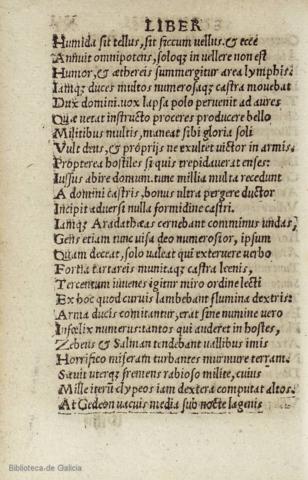 LIBER
Humida sit tellus, sit siccum vellus. & ecce
Annuit omnipotens, soloq; in vellere non est
Humor, & ætherijs summergitur area lymphis.
Iamq; duces multos numerosaq; castra mouebat
Dux domini. vox lapsa polo peruenit ad aures
Quæ vetat instructo proceres producere bello
Militibus multis, maneat sibi gloria soli
Vult deus, & proprijs ne exultet victor in armis.
Propterea hostiles si quis trepidauerat enses:
Iussus abire domum. tunc millia multa recedunt
A domini castris, bonus ultra pergere ductor
Incipit aduersi nulla formidine castri.
Iamq; Aradathæas cernebant comminus undas,
Gens etiam tunc visa deo numerosior, ipsum
Quam deceat, solo valeat qui exteruere verbo
Fortia tartareis munitaq; castra leenis,
Tercentum iuuenes igitur miro ordine lecti
Ex hoc quod curuis lambebant flumina dextris:
Arma ducis comitantur, erat sine numine vero
Infœlix numerus: tantos qui auderet in hostes,
Zebeus & Salman tendebant vallibus imis
Horrifico miseram turbantes murmure terram.
Sæuit uterq; fremens rabioso milite, cuius
Mille iterũ clypeos iam dextera computat altos.
At Gedeon vacuis media sub nocte lagenis
Biblioteca de Galicia